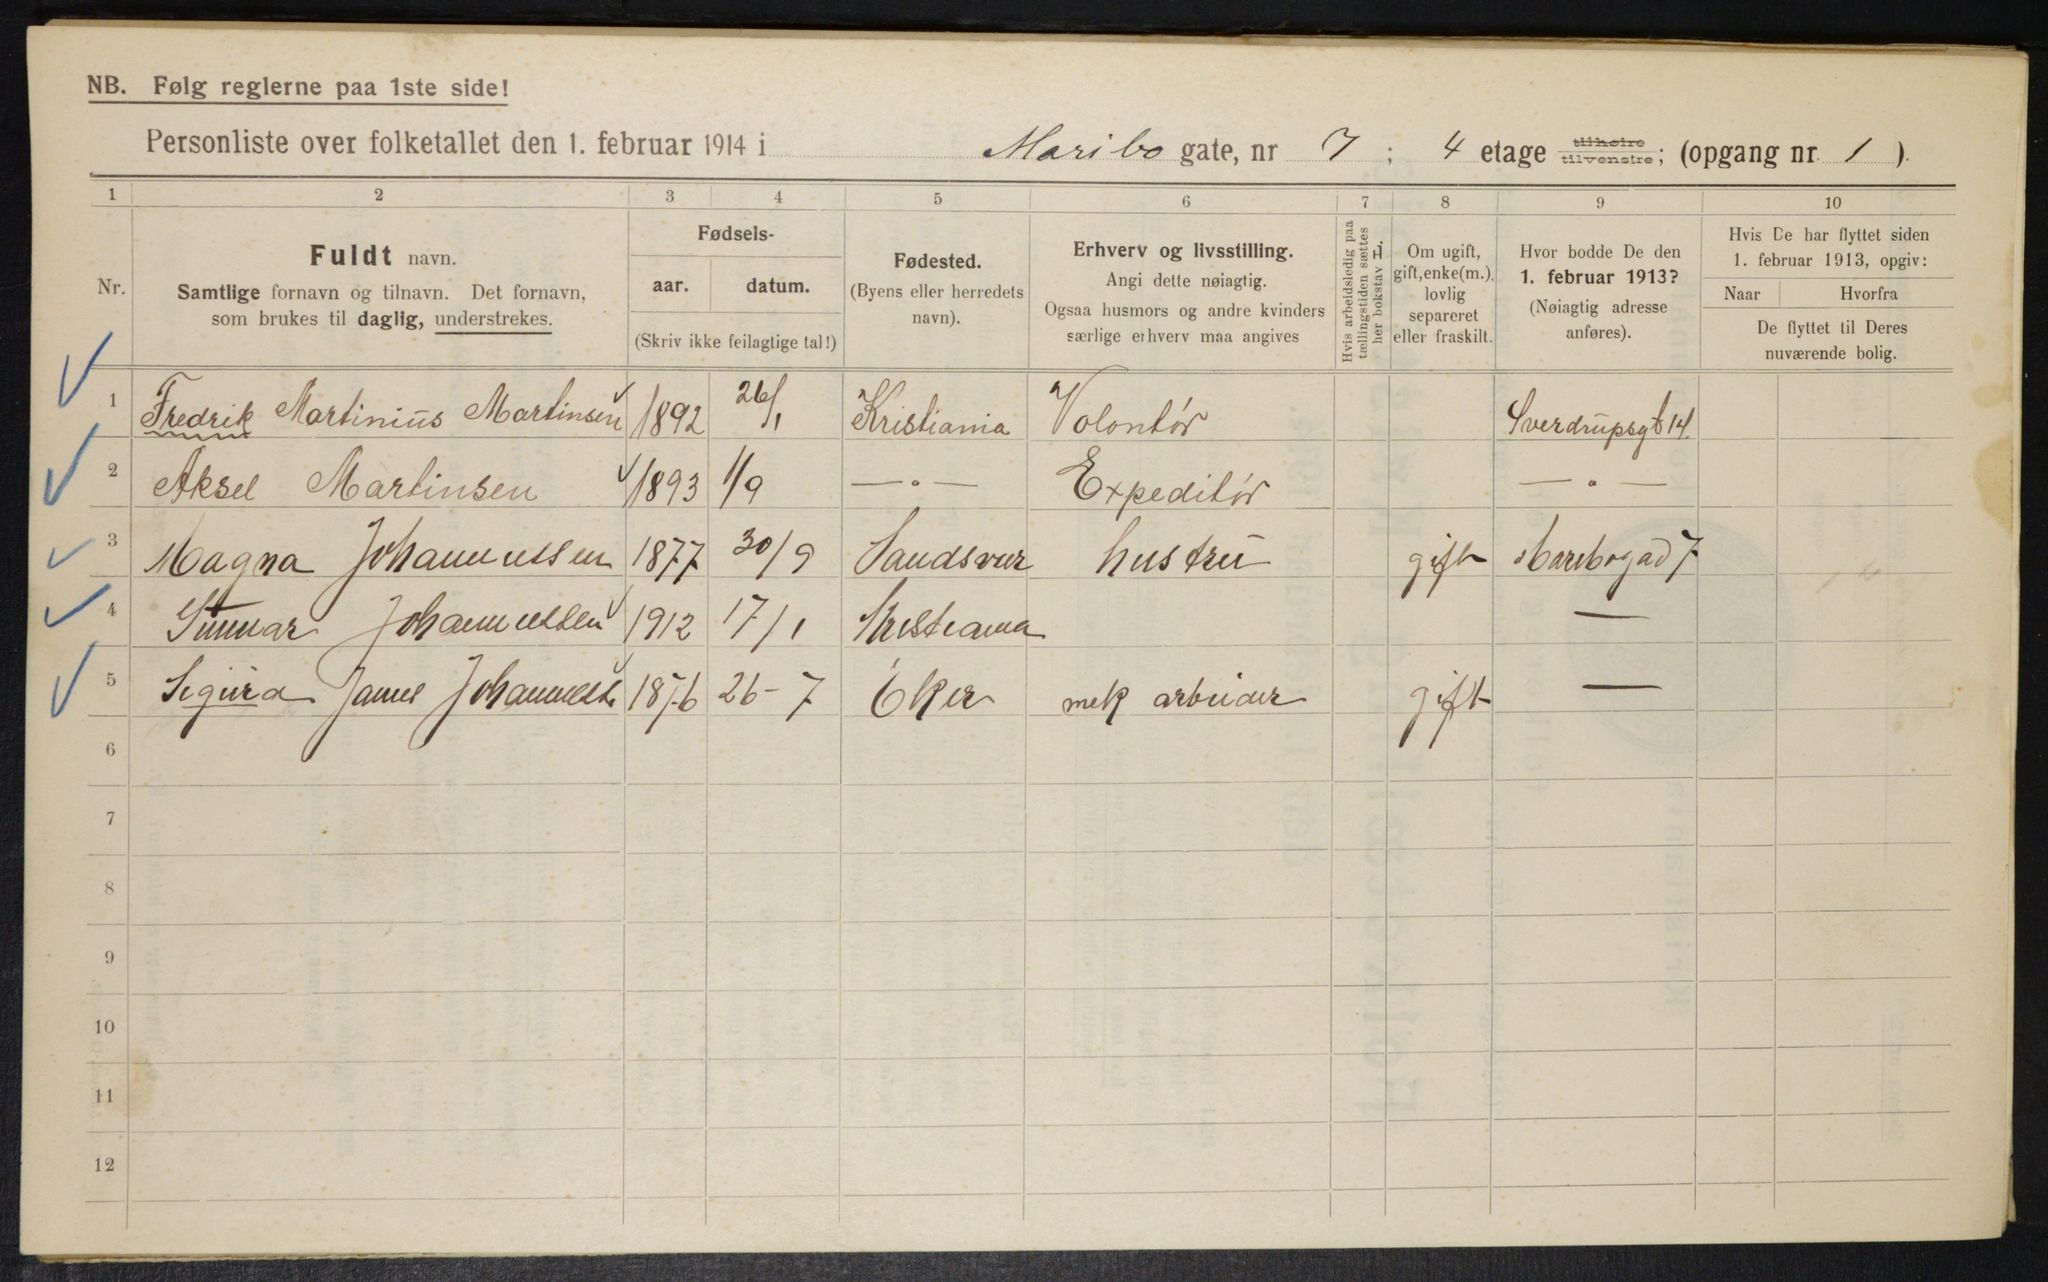 NB. Følg reglerne paa 1ste side!
Personliste over folketallet den 1. februar 1914 i Maribo gate, nr 7 ; 4 etage tilhøire tilvenstre; (opgang nr 1 ).
1 2 3 4 5 6 7 8 9 10
Nr.
Fuldt navn.
Samtlige fornavn og tilnavn. Det fornavn,
som brukes til daglig, understrekes.
Fødsels-
aar. datum.
(Skriv ikke feilagtige tal!)
Fødested.
(Byens eller herredets
navn).
Erhverv og livsstilling.
Angi dette nøiagtig.
Ogsaa husmors og andre kvinders
særlige erhverv maa angives
Hvis arbeidsledig paa
tællingstiden sættes
her bokstav L.
Om ugift,
gift, enke(m.),
lovlig
separeret
eller fraskilt.
Hvor bodde De den
1. februar 1913?
(Nøiagtig adresse
anføres).
Hvis De har flyttet siden
1. februar 1913, opgiv:
Naar Hvorfra
De flyttet til Deres
nuværende bolig.
1 Fredrik Martinius Martinsen 1892 26/1 Kristiania Volontør Sverdrupsgt 14.
2 Aksel Martinsen 1893 1/9 — " — Expeditør — " —
3 Magna Johannessen 1877 30/9 Sandsvær hustru gift Maribogad 7
4 Gunnar Johannessen 1912 17/1 Kristiania —
5 Sigurd Johannesse 1876 26-7 Eker mek arbeider gift —
6
7
8
9
10
11
12